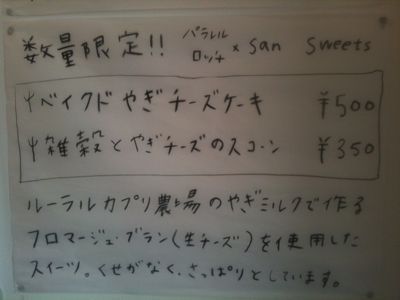 数量限定!! パラレルロッヂ × san sweets
ベイクドやぎチーズケーキ ¥500
雑穀とやぎチーズのスコーン ¥350
ルーラルカプリ農場のやぎミルクで作る
フロマージュ・ブラン(生チーズ)を使用した
スイーツ。くせがなく、さっぱりとしています。